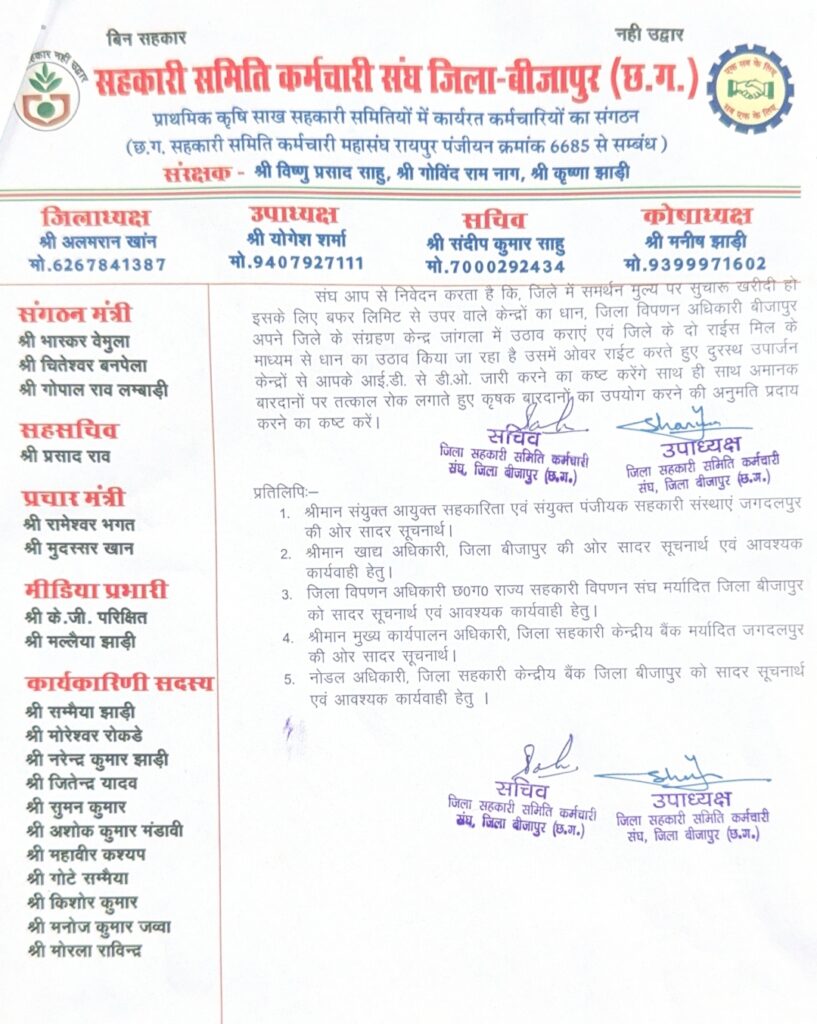 बिन सहकार
नही उद्वार
सहकारी समिति कर्मचारी संघ जिला-बीजापुर (छ.ग.)
प्राथमिक कृषि साख सहकारी समितियों में कार्यरत कर्मचारियों का संगठन
(छ.ग. सहकारी समिति कर्मचारी महासंघ रायपुर पंजीयन क्रमांक 6685 से सम्बंध )
संरक्षक - श्री विष्णु प्रसाद साहु, श्री गोविंद राम नाग, श्री कृष्णा झाड़ी
एक सब के लिए
सब एक के लिए
जिलाध्यक्ष
श्री अलमरान खांन
मो.6267841387
उपाध्यक्ष
श्री योगेश शर्मा
मो.9407927111
सचिव
श्री संदीप कुमार साहु
मो.7000292434
कोषाध्यक्ष
श्री मनीष झाड़ी
मो.9399971602
संगठन मंत्री
श्री भास्कर वेमुला
श्री चितेश्वर बनपेला
श्री गोपाल राव लम्बाड़ी
सहसचिव
श्री प्रसाद राव
प्रचार मंत्री
श्री रामेश्वर भगत
श्री मुदस्सर खान
मीडिया प्रभारी
श्री के.जी. परिक्षित
श्री मल्लैया झाड़ी
कार्यकारिणी सदस्य
श्री सम्मैया झाड़ी
श्री मोरेश्वर रोकडे
श्री नरेन्द्र कुमार झाड़ी
श्री जितेन्द्र यादव
श्री सुमन कुमार
श्री अशोक कुमार मंडावी
श्री महावीर कश्यप
श्री गोटे सम्मैया
श्री किशोर कुमार
श्री मनोज कुमार जव्वा
श्री मोरला राविन्द्र
संघ आप से निवेदन करता है कि, जिले में समर्थन मुल्य पर सुचारू खरीदी हो
इसके लिए बफर लिमिट से उपर वाले केन्द्रों का धान, जिला विपणन अधिकारी बीजापुर
अपने जिले के संग्रहण केन्द्र जांगला में उठाव कराएं एवं जिले के दो राईस मिल के
माध्यम से धान का उठाव किया जा रहा है उसमें ओवर राईट करते हुए दुरस्थ उपार्जन
केन्द्रों से आपके आई.डी. से डी.ओ. जारी करने का कष्ट करेंगे साथ ही साथ अमानक
बारदानों पर तत्काल रोक लगाते हुए कृषक बारदानों का उपयोग करने की अनुमति प्रदाय
करने का कष्ट करें।
सचिव
जिला सहकारी समिति कर्मचारी
संघ, जिला बीजापुर (छ.ग.)
उपाध्यक्ष
जिला सहकारी समिति कर्मचारी
संघ, जिला बीजापुर (छ.ग.)
प्रतिलिपिः–
1. श्रीमान संयुक्त आयुक्त सहकारिता एवं संयुक्त पंजीयक सहकारी संस्थाएं जगदलपुर
की ओर सादर सूचनार्थ।
2. श्रीमान खाद्य अधिकारी, जिला बीजापुर की ओर सादर सूचनार्थ एवं आवश्यक
कार्यवाही हेतु।
3. जिला विपणन अधिकारी छ0ग0 राज्य सहकारी विपणन संघ मर्यादित जिला बीजापुर
को सादर सूचनार्थ एवं आवश्यक कार्यवाही हेतु।
4. श्रीमान मुख्य कार्यपालन अधिकारी, जिला सहकारी केन्द्रीय बैंक मर्यादित जगदलपुर
की ओर सादर सूचनार्थ।
5. नोडल अधिकारी, जिला सहकारी केन्द्रीय बैंक जिला बीजापुर को सादर सूचनार्थ
एवं आवश्यक कार्यवाही हेतु ।
सचिव
जिला सहकारी समिति कर्मचारी
संघ, जिला बीजापुर (छ.ग.)
उपाध्यक्ष
जिला सहकारी समिति कर्मचारी
संघ, जिला बीजापुर (छ.ग.)